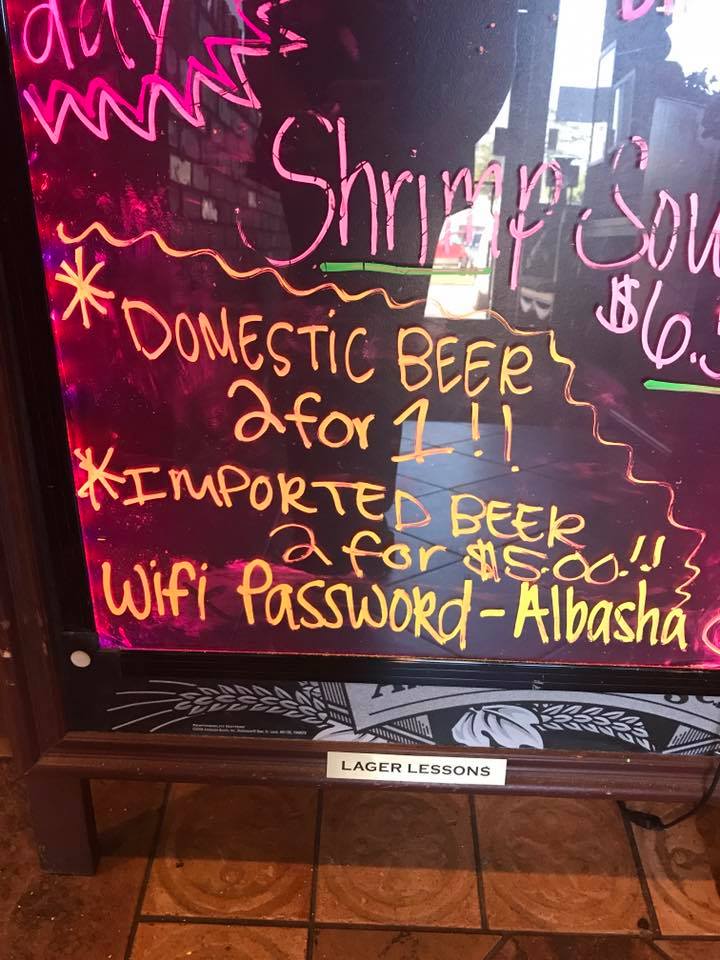 day
Shrimp Sou
$6.
* DOMESTIC BEER
2 for 1!!
* IMPORTED BEER
2 for $5.00!!
Wifi Password - Albasha
LAGER LESSONS